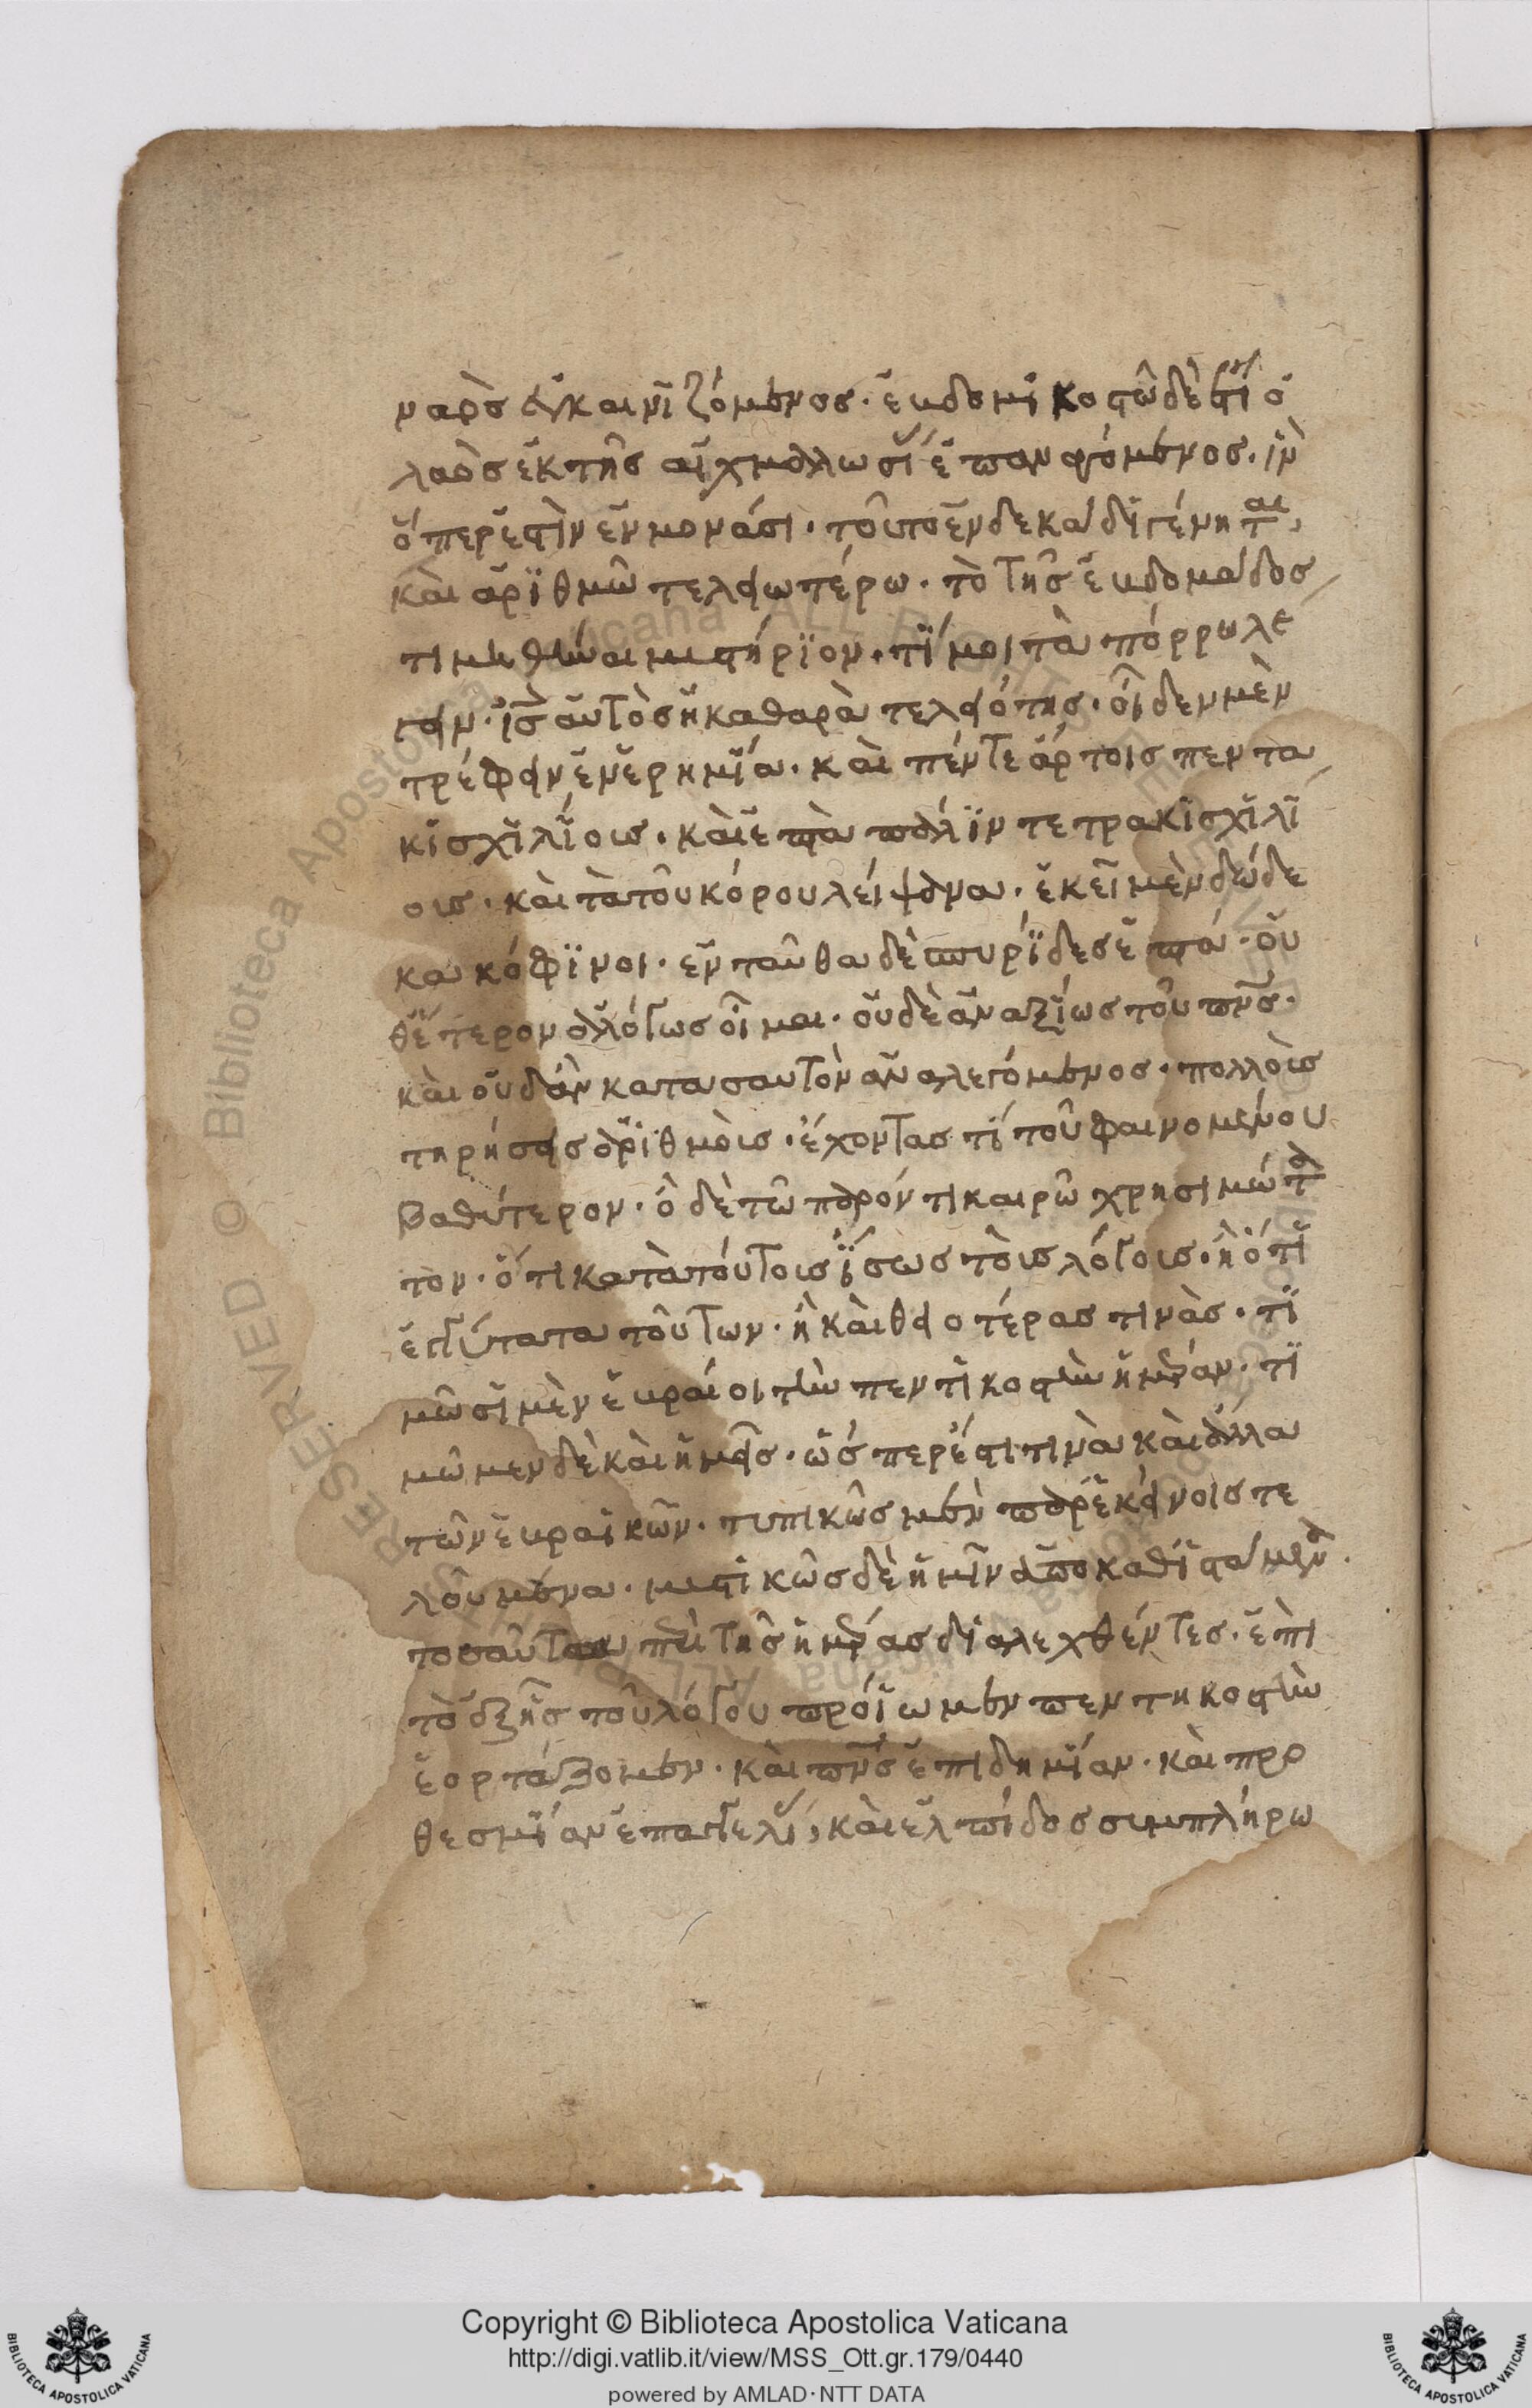 ναὸς ἐγκαινιζόμενος· ἑβδομικοστῶ δὲ ἔτι ὁ
λαὸς ἐκ τῆς αἰχμαλωσί ἐπαναγόμενος· ἵν
ὅπερ ἐστὶν ἐν μονάσι· τοῦτο ἐν δεκάδι γένηται,
καὶ ἀριθμῶ τελεωτέρω· τὸ τῆς ἑβδομάδος
τιμηθῆναι μυστήριον· τί μοι τὰ πόρρω λέ
γειν· ἰς αὐτὸς ἡ καθαρὰ τελειότης· οἶδεν μὲν
τρέφειν ἐν ἐρημία· καὶ πέντε ἄρτοις πεντα
κισχιλίοις· καὶ ἑπτὰ πάλιν τετρακισχιλί
οις· καὶ τὰ τοῦ κόρου λείψανα· ἐκεῖ μὲν δώδε
κα κόφινοι· ἐνταῦθα δὲ σπυρίδες ἑπτά· οὐ
θέτερον ἀλόγως οἶμαι· οὐδὲ ἀναξίως τοῦ πνς·
καὶ οὐδ' ἂν κατὰ σαυτὸν ἀναλεγόμενος· πολλοὺς
τηρήσεις ἀριθμοὺς· ἔχοντας τί τοῦ φαινομένου
βαθύτερον· ὃ δὲ τῶ παρόντι καιρῶ χρησιμώτα
τον· ὅτι κατὰ τούτοις ἴσως τοὺς λόγους· ἢ ὅτι
ἐγγύτατα τούτων· ἢ καὶ θειοτέρας τινὰς· τι
μῶσι μὲν ἑβραίοι τὴν πεντικοστὴν ἡμέραν· τι
μῶμεν δὲ καὶ ἡμεῖς· ὥσπερ ἔστι τινὰ καὶ ἄλλα
τῶν ἑβραϊκῶν· τυπικῶς μὲν παρ' ἐκείνοις τε
λούμενα· μυστικῶς δὲ ἡμῖν ἀποκαθιστάμενα.
τοσαῦτα περὶ τῆς ἡμέρας διαλεχθέντες· ἐπὶ
τὸ ἑξῆς τοῦ λόγου προίωμεν πεντηκοστὴν
ἑορτάζομεν· καὶ πνς ἐπιδημίαν· καὶ προ
θεσμίαν ἐπαγγελί, καὶ ἐλπίδος συμπλήρω
Copyright © Biblioteca Apostolica Vaticana
http://digi.vatlib.it/view/MSS_Ott.gr.179/0440
powered by AMLAD·NTT DATA